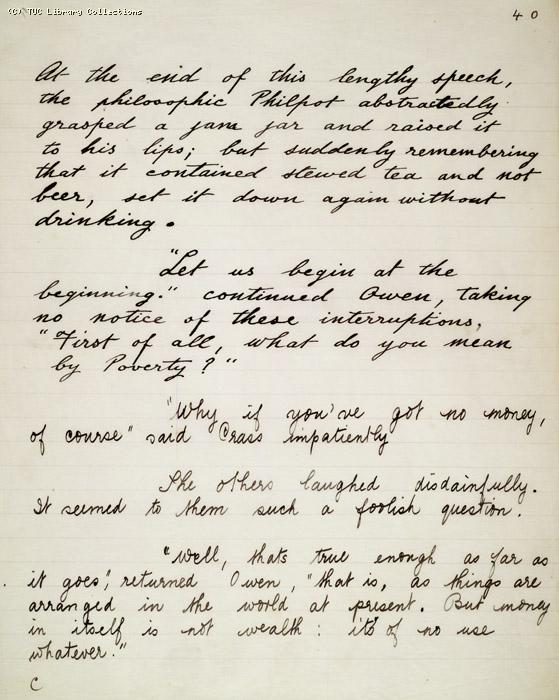 (C) TUC Library Collections
40
At the end of this lengthy speech,
the philosophic Philpot abstractedly
grasped a jam jar and raised it
to his lips; but suddenly remembering
that it contained stewed tea and not
beer, set it down again without
drinking.
"Let us begin at the
beginning." continued Owen, taking
no notice of these interruptions,
"First of all, what do you mean
by Poverty?"
"Why if you've got no money,
of course" said Crass impatiently
The others laughed disdainfully.
It seemed to them such a foolish question.
"Well, thats true enough as far as
it goes", returned Owen, "that is, as things are
arranged in the world at present. But money
in itself is not wealth: its of no use
whatever."
C